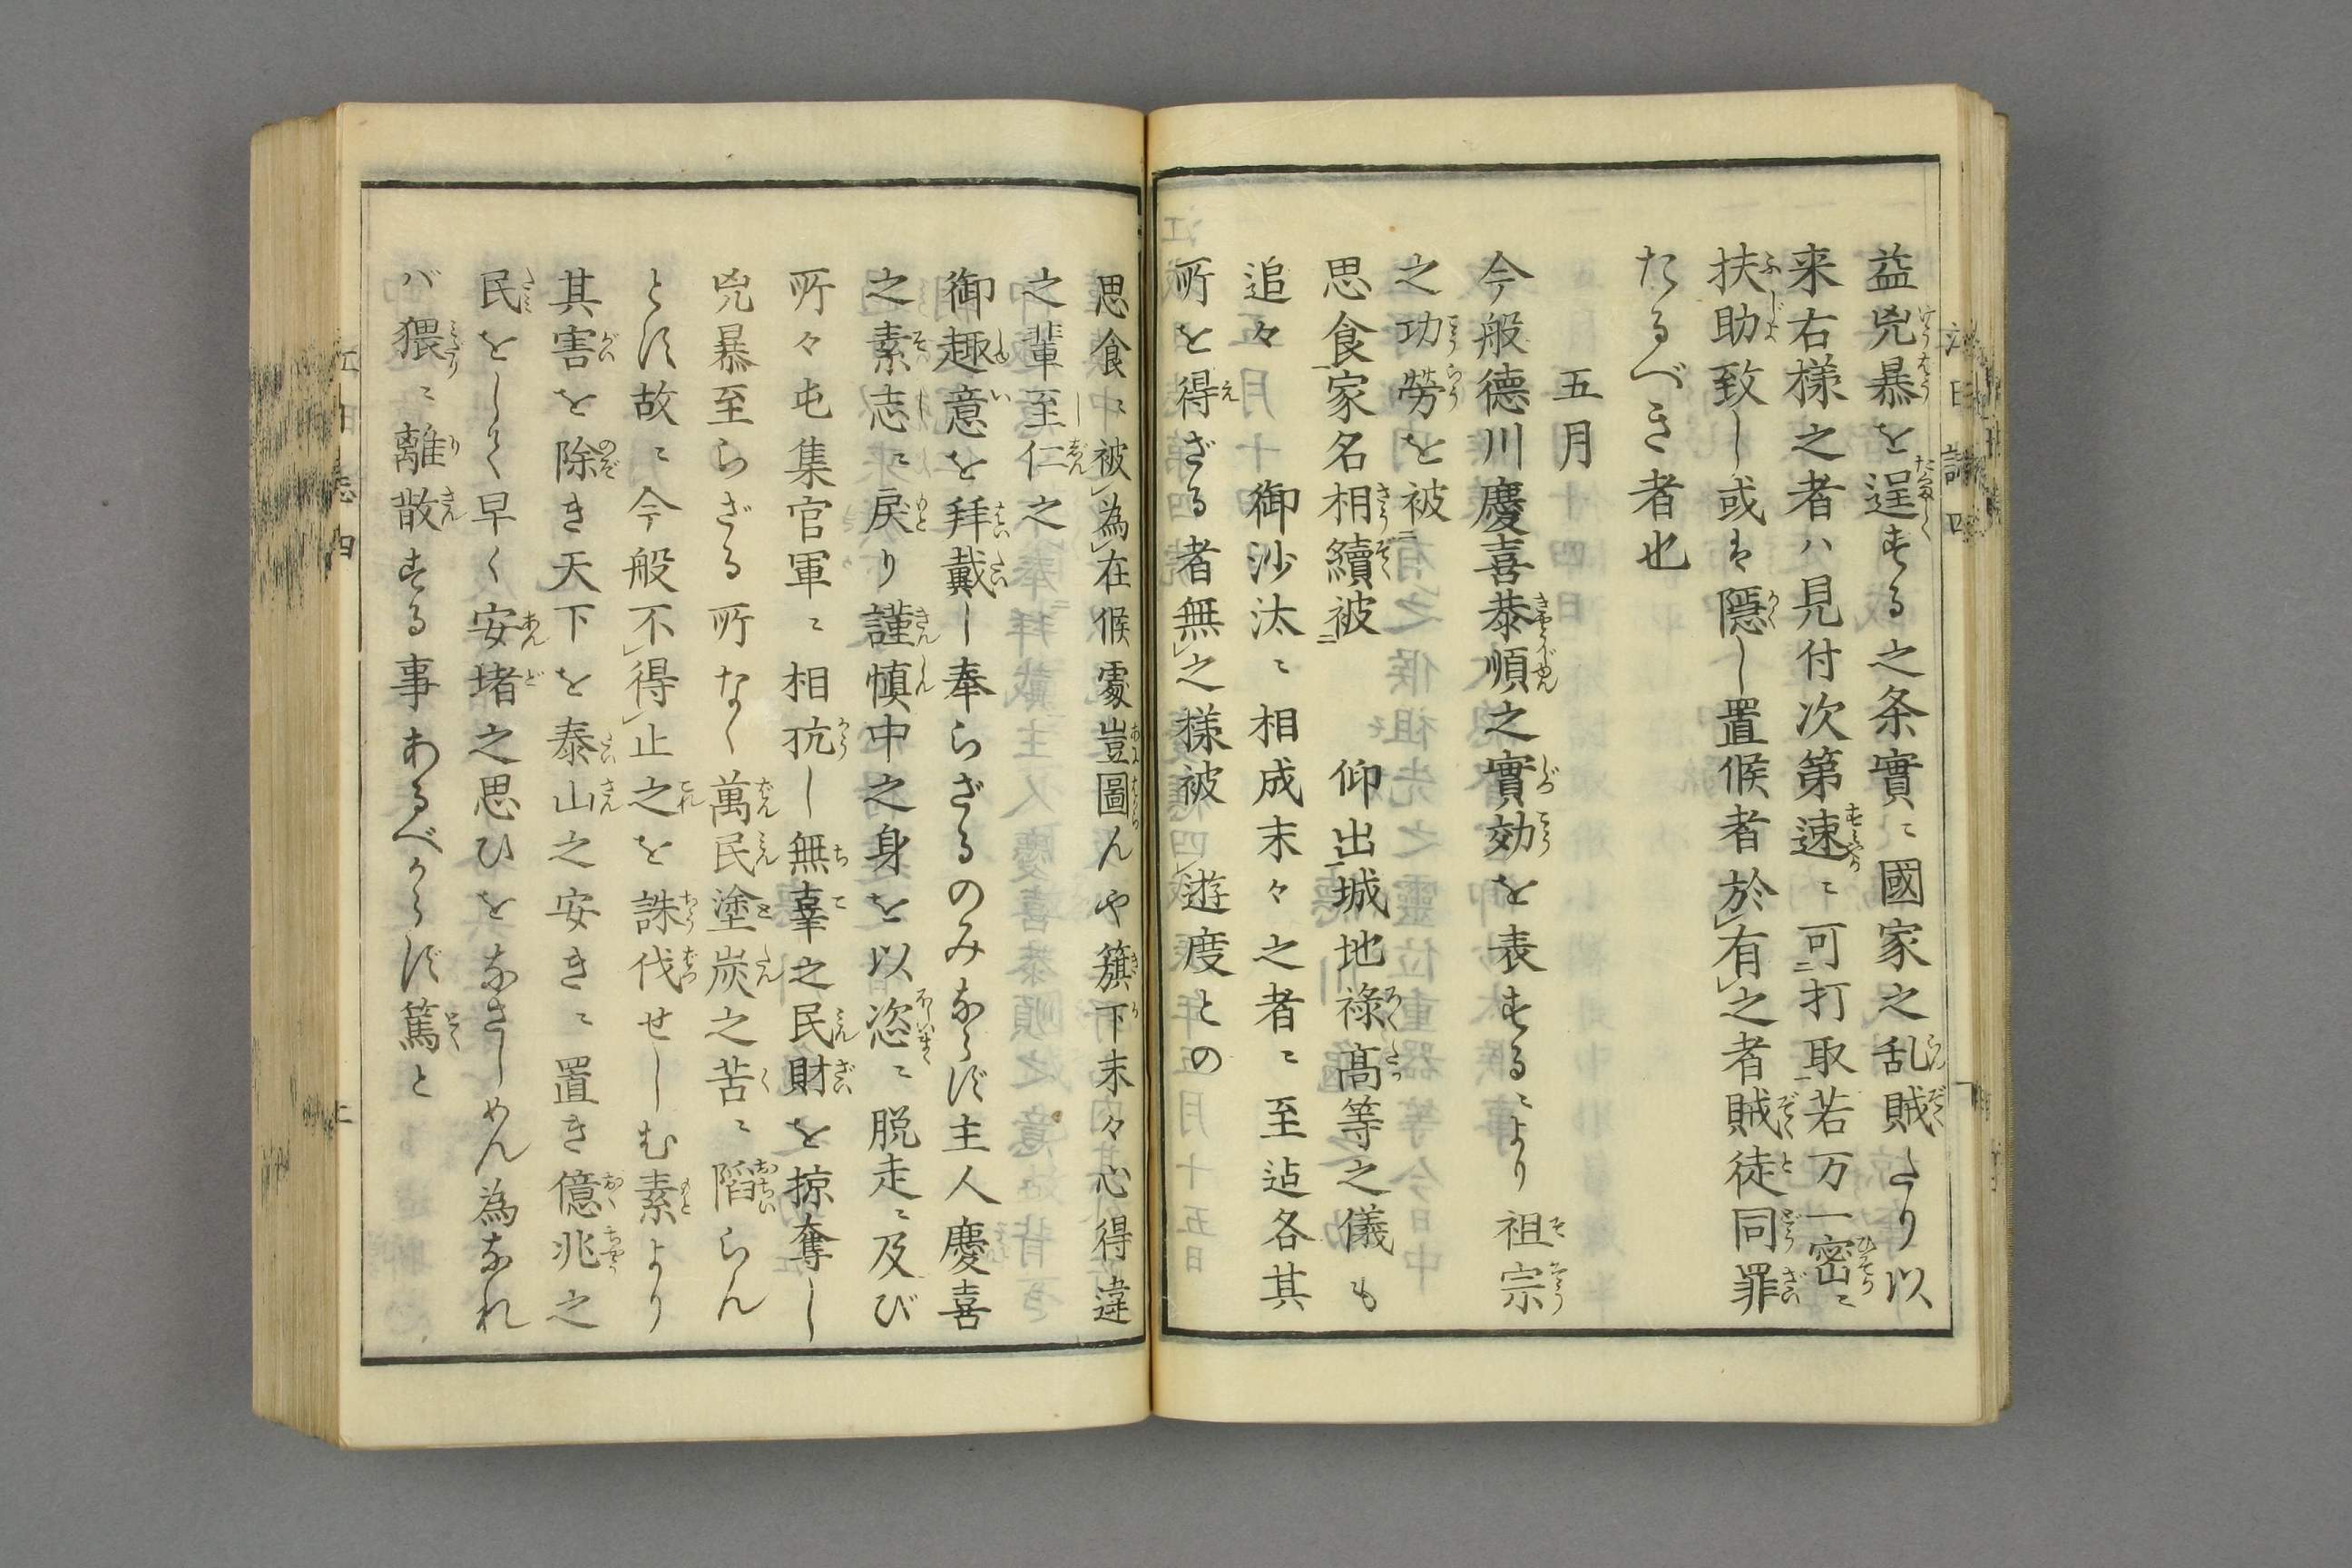 益兇暴を逞する之条實ニ國家之乱賊たり以
来右様之者ハ見付次第速ニ可打取若万一密ニ
扶助致し或は隠し置候者於有之者賊徒同罪
たるべき者也
五月
今般德川慶喜恭順之實効を表するにより祖宗
之功労を被
思食家名相續被仰出城地祿高等之儀も
追々御沙汰ニ相成末々之者ニ至迠各其
所を得ざる者無之様被遊度との
思食ニ被為在候處豈圖んや籏下末々心得違
之輩至仁之
御趣意を拜戴し奉らざるのみならず主人慶喜
之素志ニ戻り謹慎中之身を以恣ニ脱走ニ及び
所々屯集官軍ニ相抗し無辜之民財を掠奪し
兇暴至らざる所なく萬民塗炭之苦ニ陷らん
とす故ニ今般不得止之を誅伐せしむ素より
其害を除き天下を泰山之安きニ置き億兆之
民をして早く安堵之思ひをなさしめん為なれ
バ猥ニ離散する事あるべからず篤と